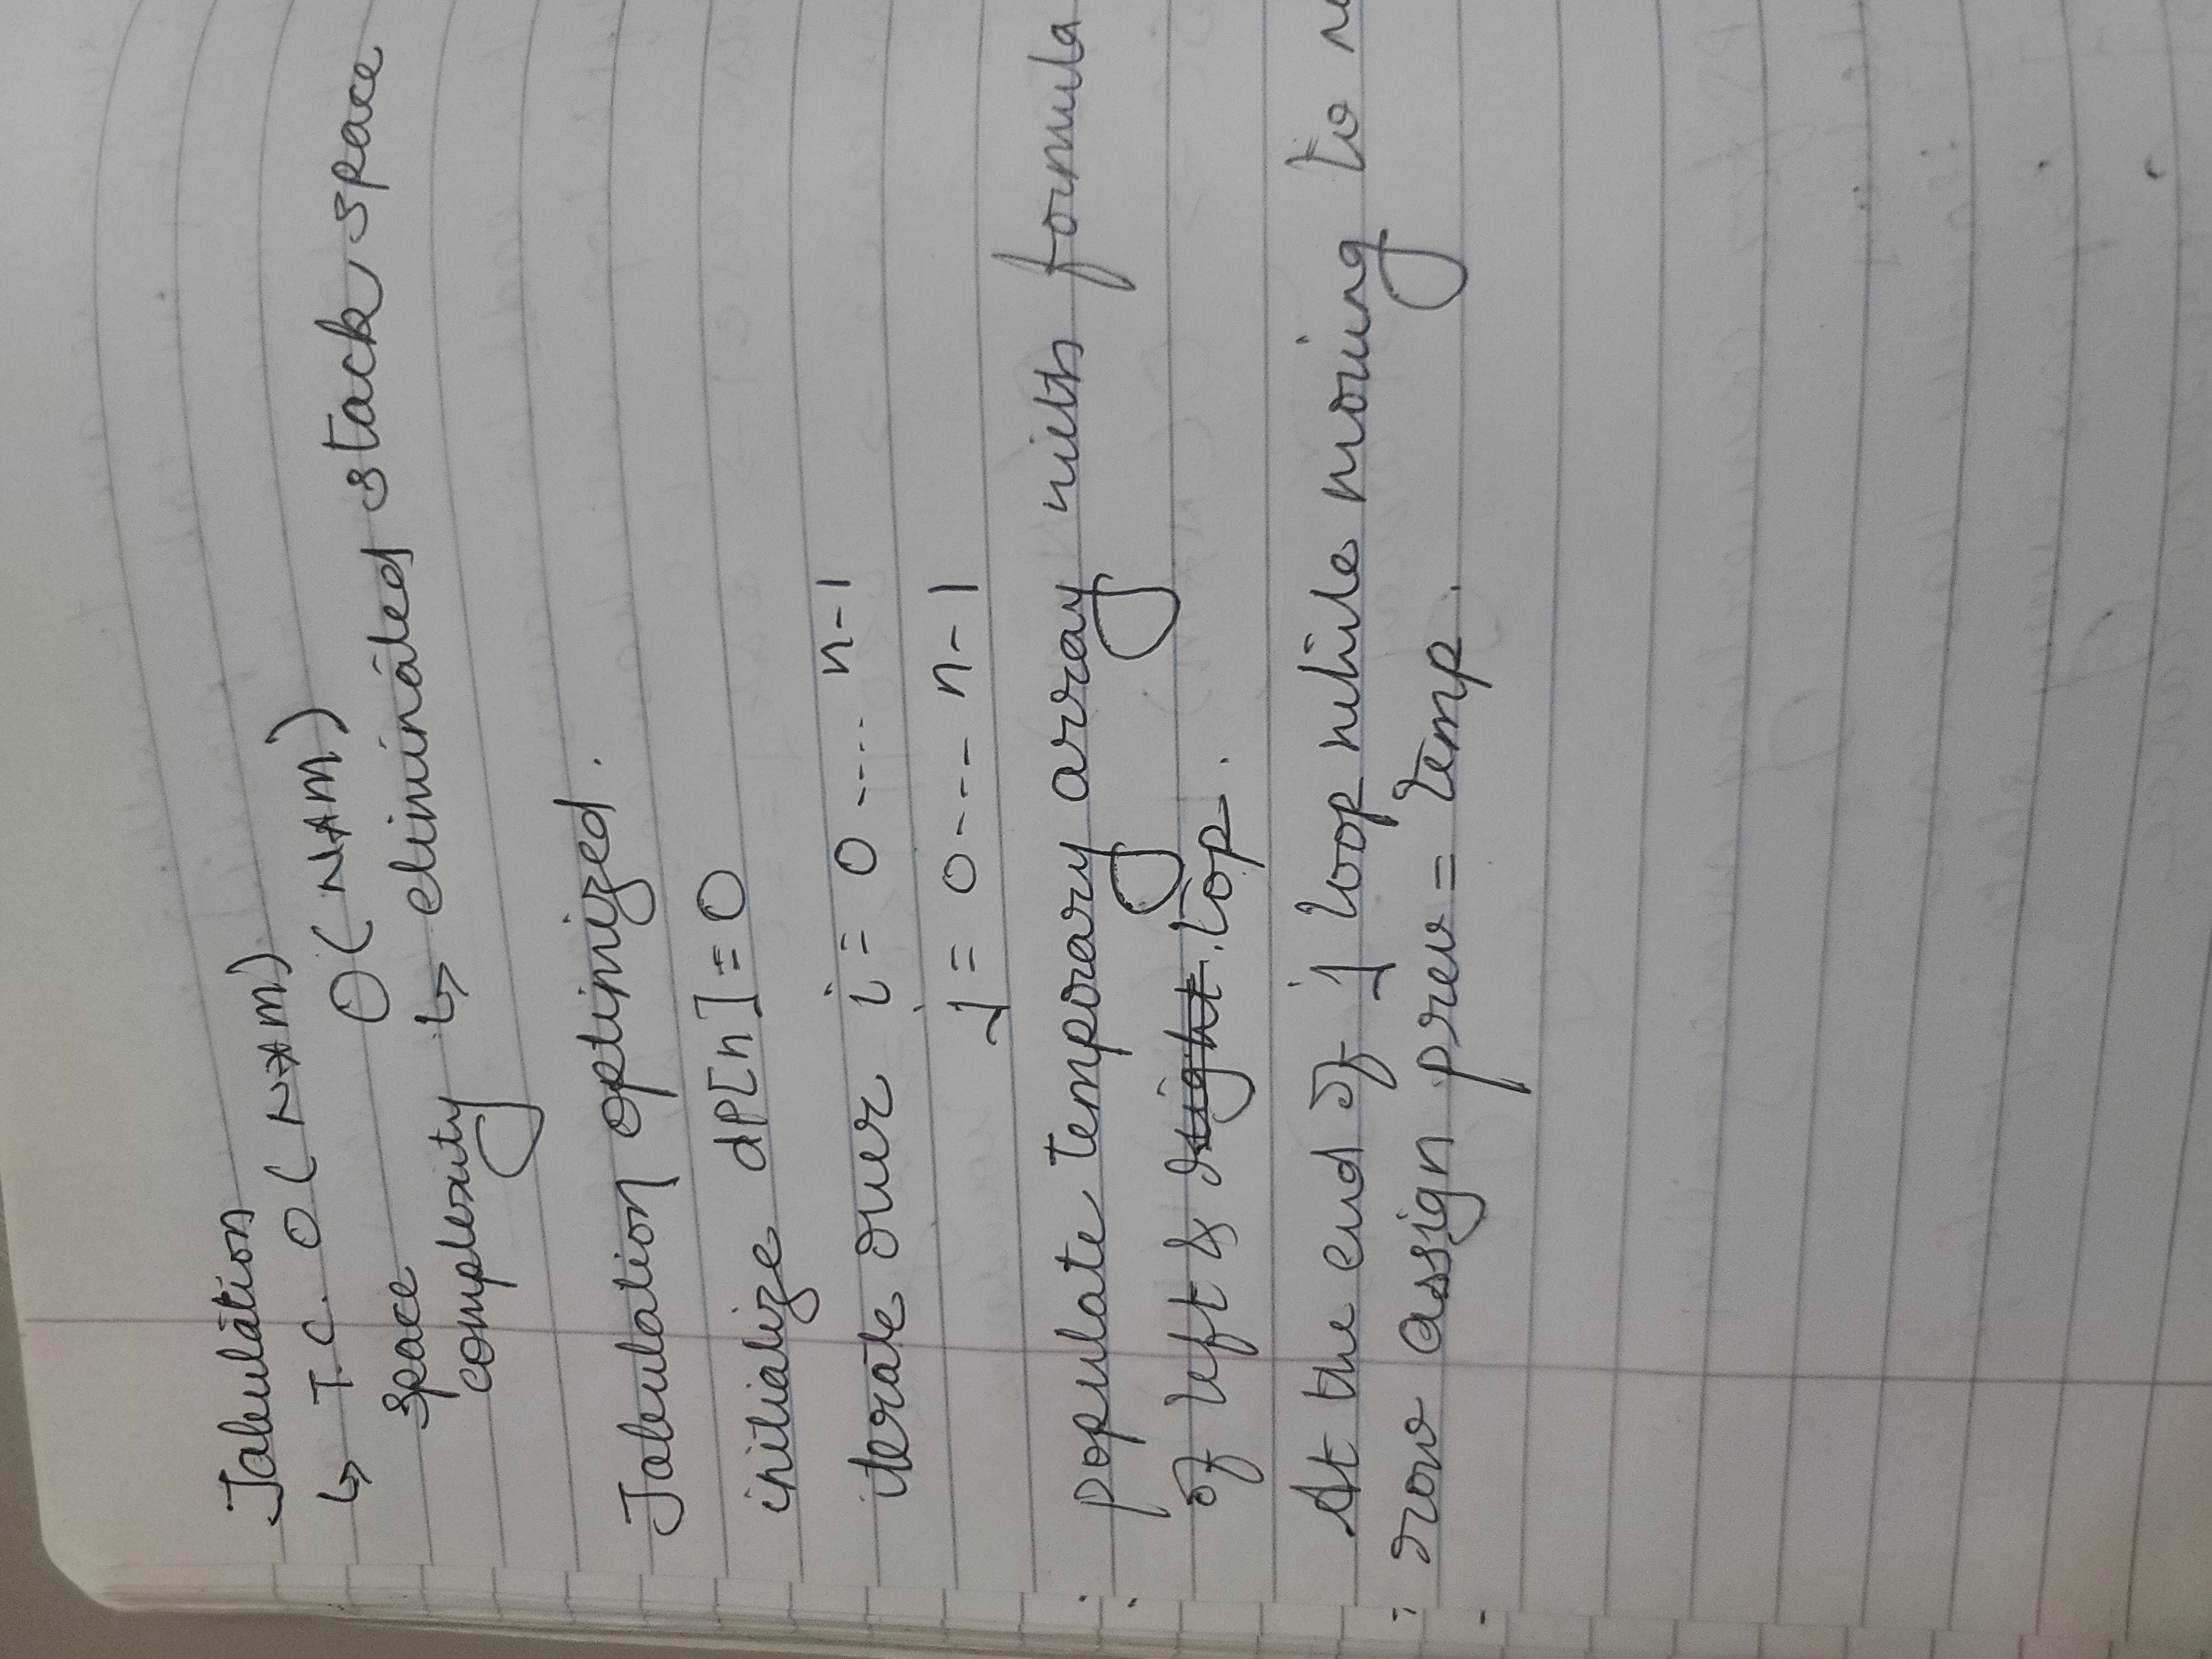 Tabulation
↳ T.C. O(N*M)
space O(N*M)
complexity ↳ eliminated stack space
Tabulation optimized.
initialize dp[n] = 0
iterate over i = 0 .... n-1
j = 0 --- n-1
populate temporary array with formula
of left & right top.
At the end of j loop while moving to
row assign prev = temp.